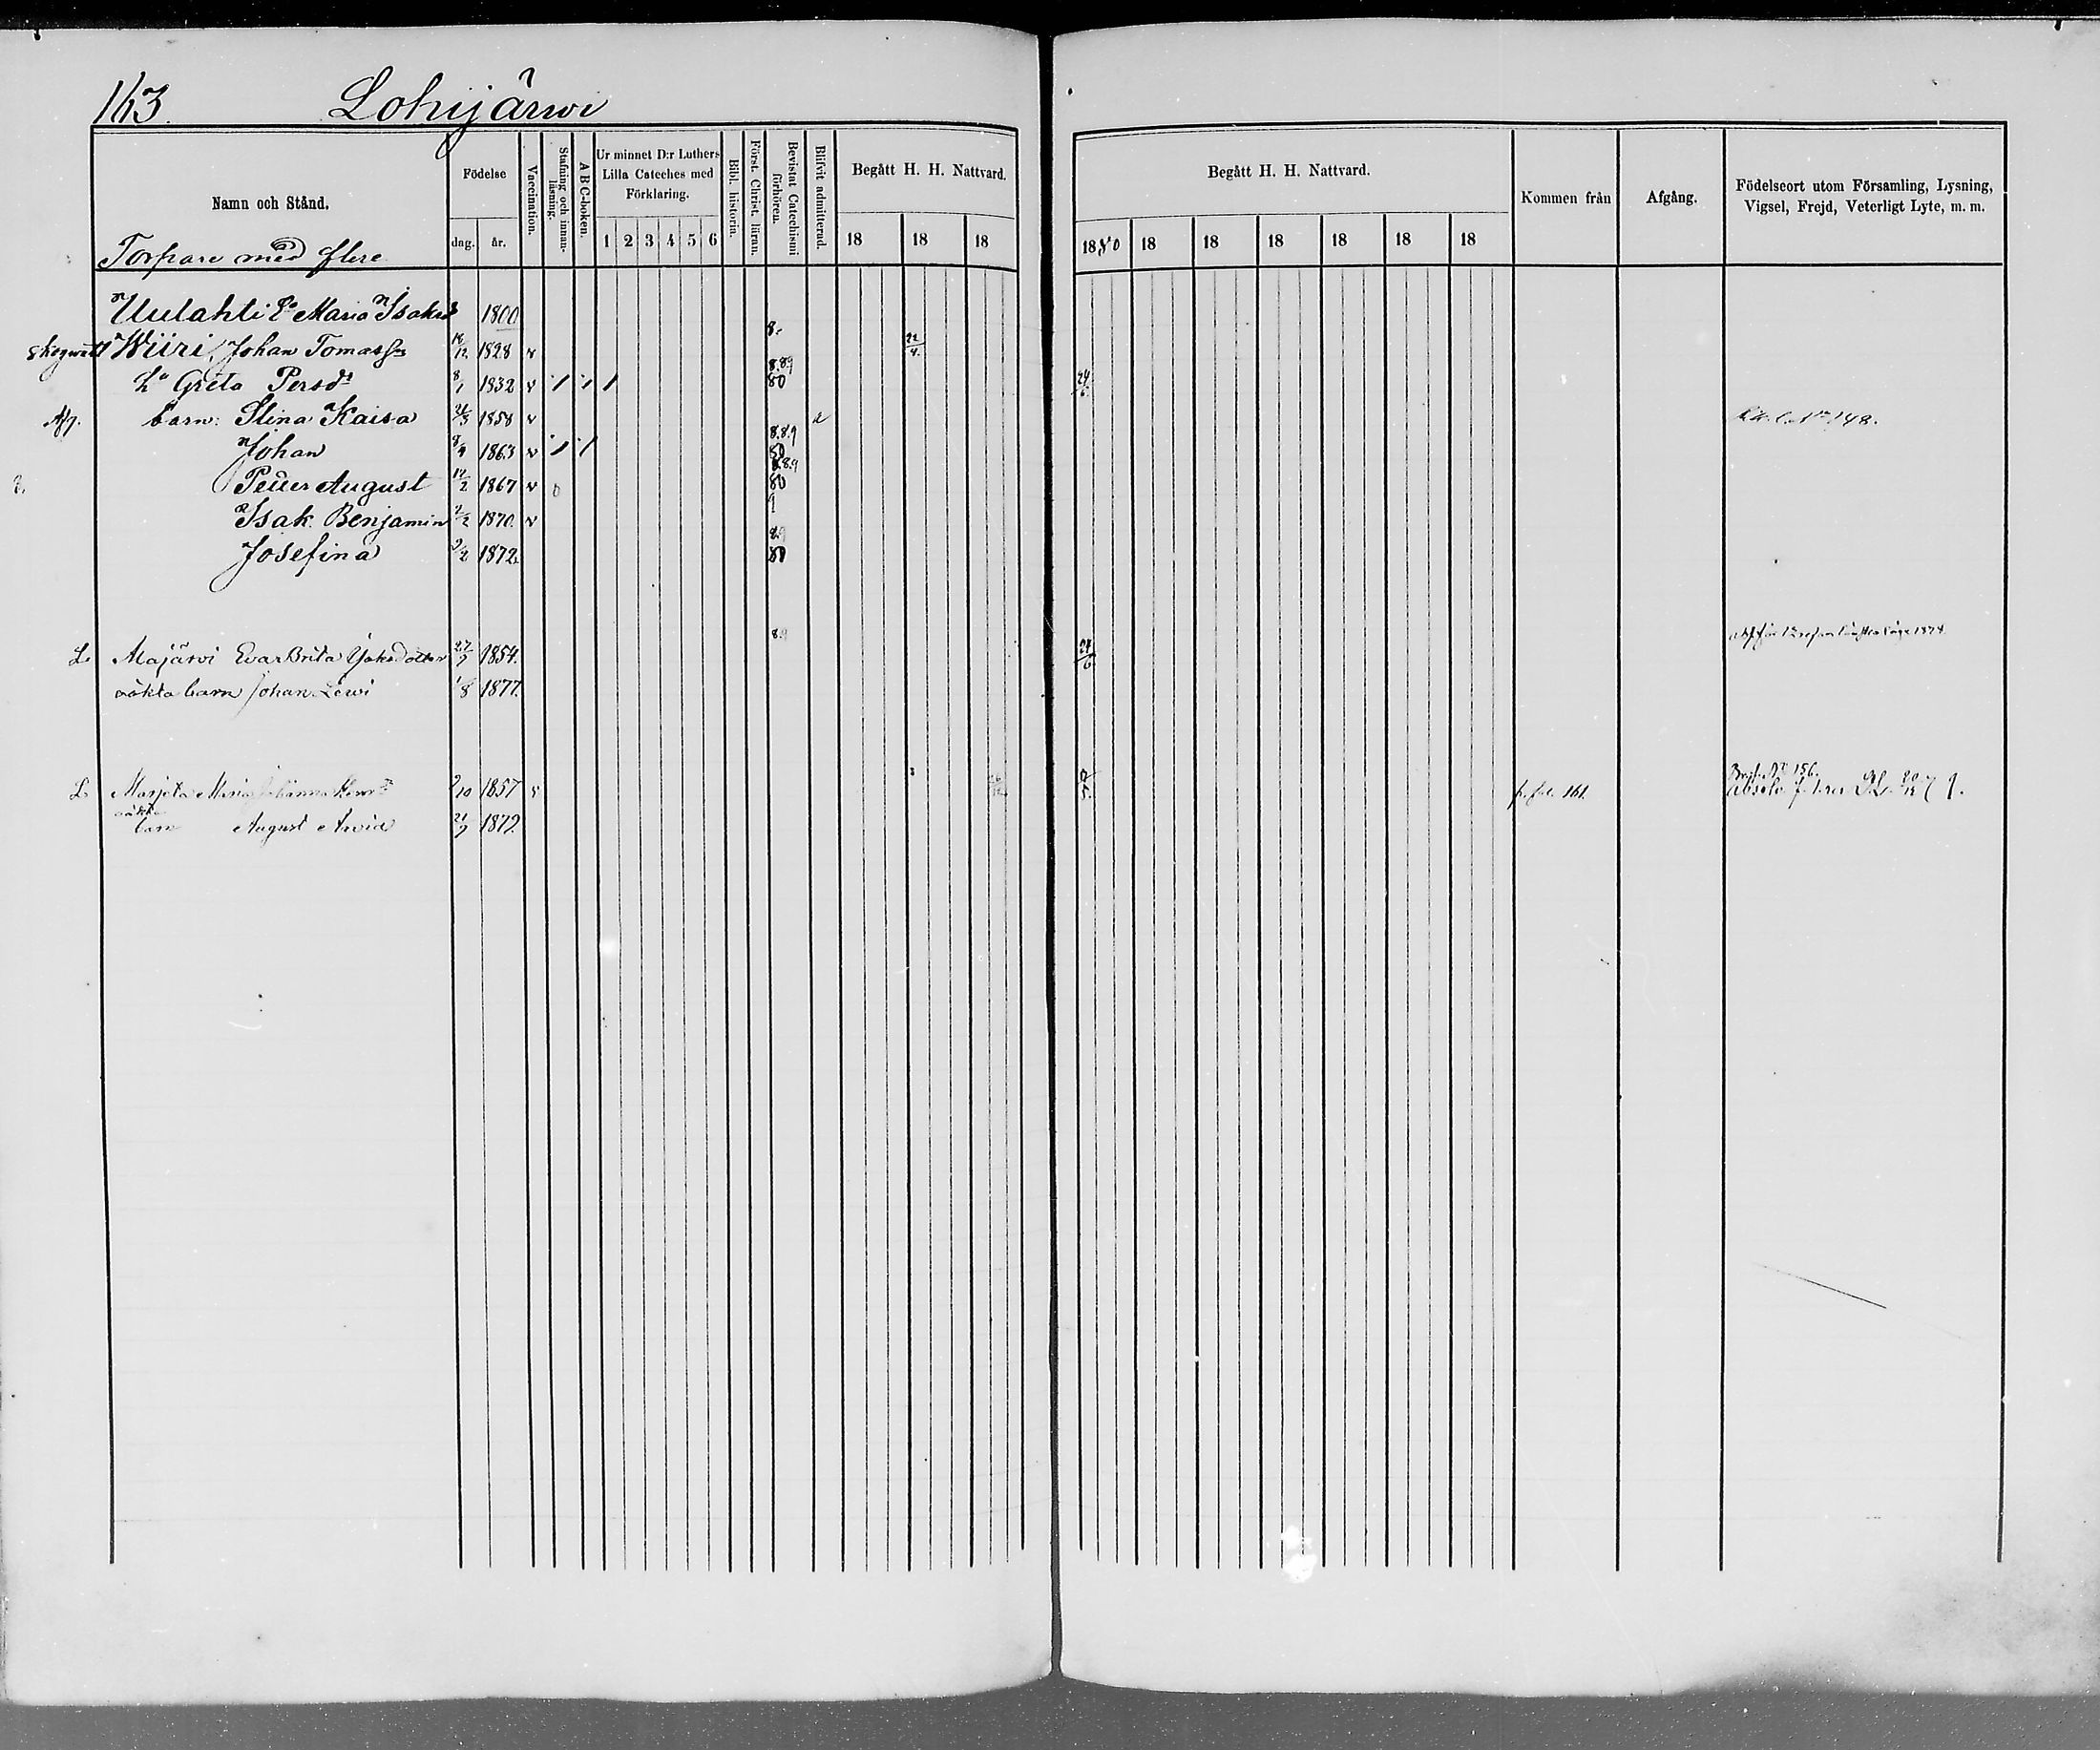 163. Lohijärwi
Namn och Stånd.
Födelse
dag. år.
Vaccination.
Stafning och innan-läsning.
A B C-boken.
Ur minnet D:r Luthers Lilla Cateches med Förklaring.
1 2 3 4 5 6
Bibl. historin.
Först. Christ. läran.
Bevistat Catechismi förhören.
Blifvit admitterad.
Begått H. H. Nattvard.
18 18 18
Begått H. H. Nattvard.
1880 18 18 18 18 18 18
Kommen från
Afgång.
Födelseort utom Församling, Lysning, Vigsel, Frejd, Veterligt Lyte, m. m.
Torpare med flere
Uulahti Maria Isaksd 1800
Wiiri, Johan Tomass 1828 v 8. 22/4.
Greta Persdr 8/1 1832 v 8.8.9 80 24/6
Afg. barn: Stina Kaisa 1858 v 148.
Johan 1863 v 8.8.9 80
Petter August 12/2 1867 v 0 8.8.9 80
Isak Benjamin 1870. v 9
Josefina 1872. 8.9 80
L. Majärvi Eva Brita Isaksdotter 27/7 1854. 8.9 24/6 1874
oäkta barn Johan Lewi 1/8 1877.
L. Marjeta Maria Johanna 2/10 1857 fr. fol. 161. 156.
oäkta barn August Arvid 21/7 1879.